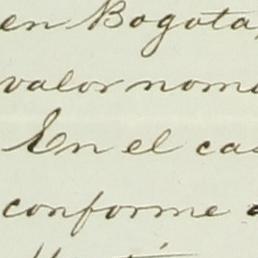 en Bogota,
valor nomi
En el cas
conforme a